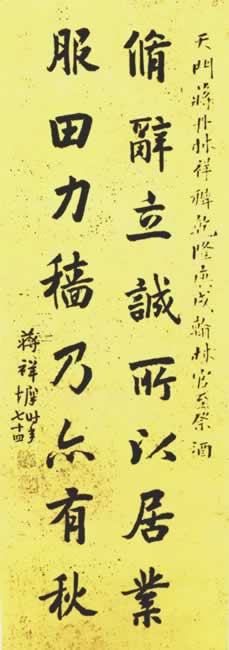 天門蔣丹林祥墀乾隆庚戌翰林官至祭酒
脩辭立誠所以居業
服田力穡乃亦有秋
蔣祥墀時年
七十四